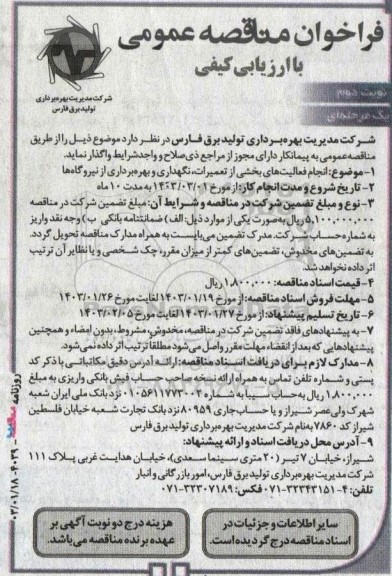 فراخوان مناقصه عمومی
با ارزیابی کیفی
شرکت مدیریت بهره‌برداری
تولید برق فارس
نوبت دوم
یک مرحله‌ای
شرکت مدیریت بهره‌برداری تولید برق فارس در نظر دارد موضوع ذیل را از طریق
مناقصه عمومی به پیمانکار دارای مجوز از مراجع ذی‌صلاح و واجد شرایط واگذار نماید.
۱- موضوع: انجام فعالیت‌های بخشی از تعمیرات، نگهداری و بهره‌برداری از نیروگاه‌ها
۲- تاریخ شروع و مدت انجام کار: از مورخ ۱۴۰۳/۰۳/۰۱ به مدت ۱۰ ماه
۳- نوع و مبلغ تضمین شرکت در مناقصه و شرایط آن: مبلغ تضمین شرکت در مناقصه
۵,۱۰۰,۰۰۰,۰۰۰ ریال به‌صورت یکی از موارد ذیل: الف) ضمانتنامه بانکی ب) وجه نقد واریز
به شماره حساب شرکت. مدرک تضمین می‌بایست به همراه مدارک مناقصه تحویل گردد.
به تضمین‌های مخدوش، تضمین‌های کمتر از میزان مقرر، چک شخصی و یا نظایر آن ترتیب
اثر داده نخواهد شد.
۴- قیمت اسناد مناقصه: ۱,۸۰۰,۰۰۰ ریال
۵- مهلت فروش اسناد مناقصه: از مورخ ۱۴۰۳/۰۱/۱۹ لغایت مورخ ۱۴۰۳/۰۱/۲۶
۶- تاریخ تسلیم پیشنهاد: از مورخ ۱۴۰۳/۰۱/۲۷ لغایت مورخ ۱۴۰۳/۰۲/۰۵
۷- به پیشنهادهای فاقد تضمین شرکت در مناقصه، مخدوش، مشروط، بدون امضاء و همچنین
پیشنهادهایی که بعد از انقضاء مهلت مقرر واصل می‌شود مطلقا ترتیب اثر داده نمی‌شود.
۸- مدارک لازم برای دریافت اسناد مناقصه: ارائه آدرس دقیق مکاتباتی با ذکر کد
پستی و شماره تلفن تماس به همراه ارائه نسخه صاحب حساب فیش بانکی واریزی به مبلغ
۱,۸۰۰,۰۰۰ ریال به حساب سیبا به شماره ۰۱۰۵۶۱۱۷۷۳۰۰۲ نزد بانک ملی ایران شعبه
شهرک ولی‌عصر شیراز و یا حساب جاری ۸۰۹۵۹ نزد بانک تجارت شعبه خیابان فلسطین
شیراز کد ۷۸۶۰ به‌نام شرکت مدیریت بهره‌برداری تولید برق فارس
۹- آدرس محل دریافت اسناد و ارائه پیشنهاد:
شیراز، خیابان ۷ تیر (۲۰ متری سینما سعدی)، خیابان هدایت غربی پلاک ۱۱۱
شرکت مدیریت بهره‌برداری تولید برق فارس، امور بازرگانی و انبار
تلفن: ۴-۳۲۳۴۳۱۵۱-۰۷۱ فکس: ۳۲۳۰۷۱۸۹-۰۷۱
سایر اطلاعات و جزئیات در
اسناد مناقصه درج گردیده است.
هزینه درج دو نوبت آگهی بر
عهده برنده مناقصه می‌باشد.
روزنامه
۴۰۳۹ - ۰۳/۰۱/۱۸